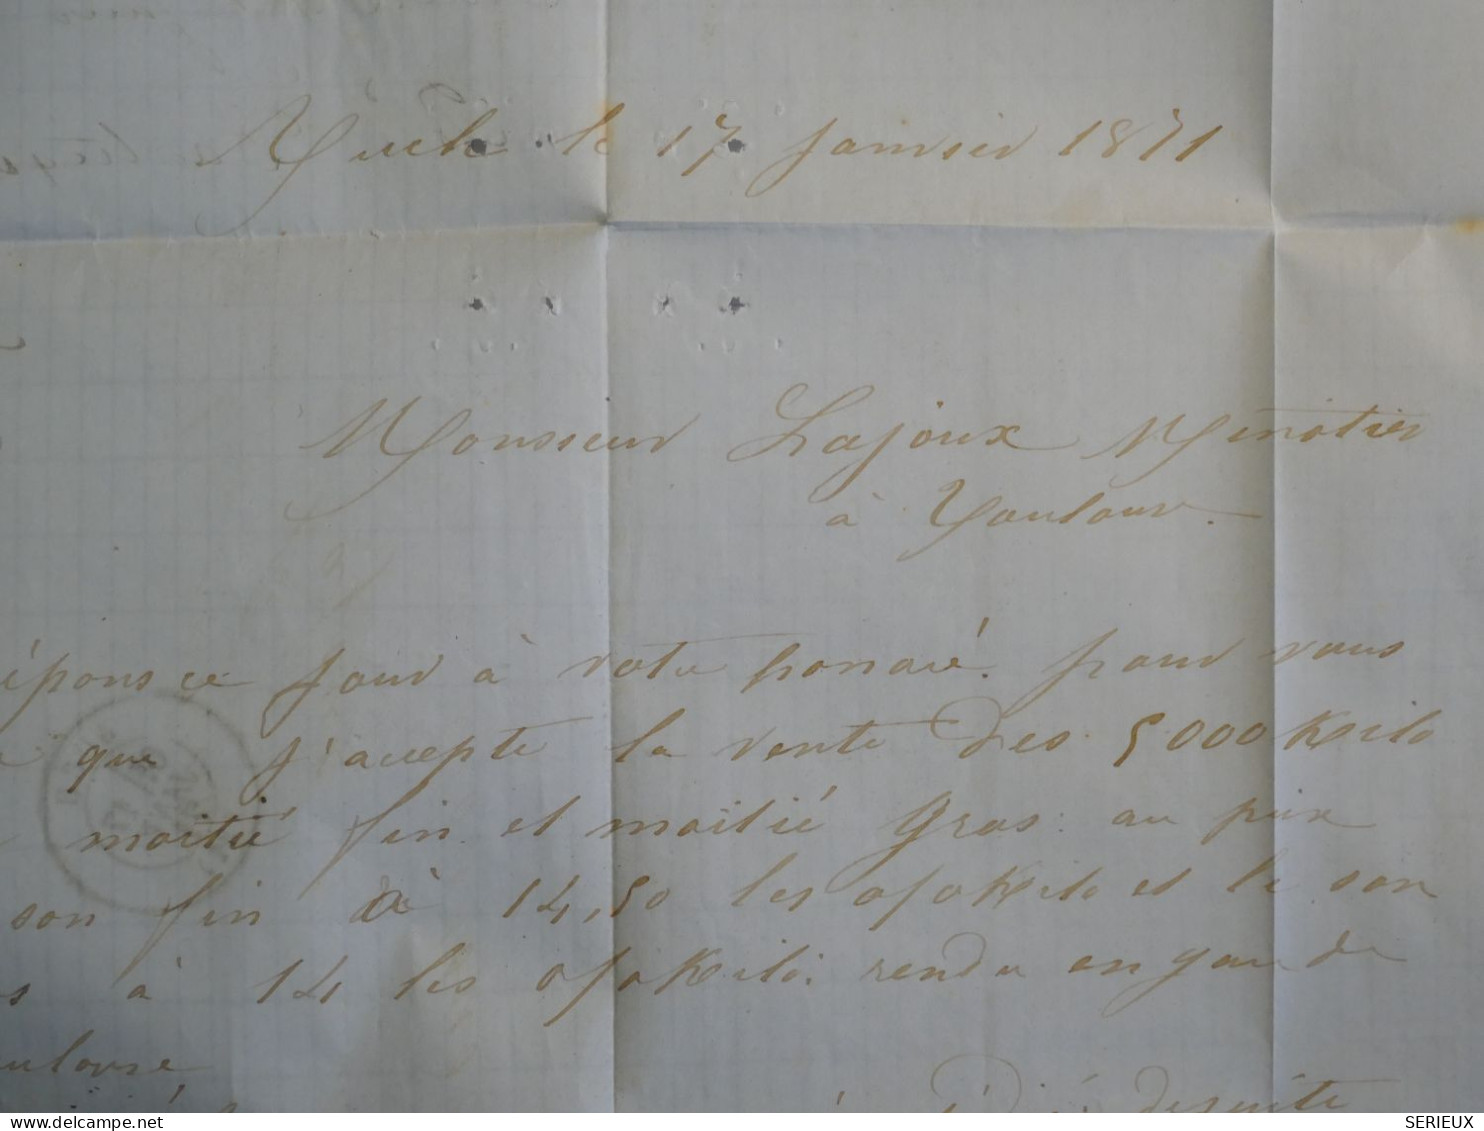 Auch le 17 Janvier 1871
Monsieur Lajoux Minotier
à Toulouse.
éponse ce jour à votre honoré. pour vous
que j'accepte la vente des 5000 Kilo
moitié fin et moitié gros. au prix
son fin à 14,50 les % Kilo et le son
s à 14 les % Kilo. rendu en gare de
oulouse
de suite
SERIEUX